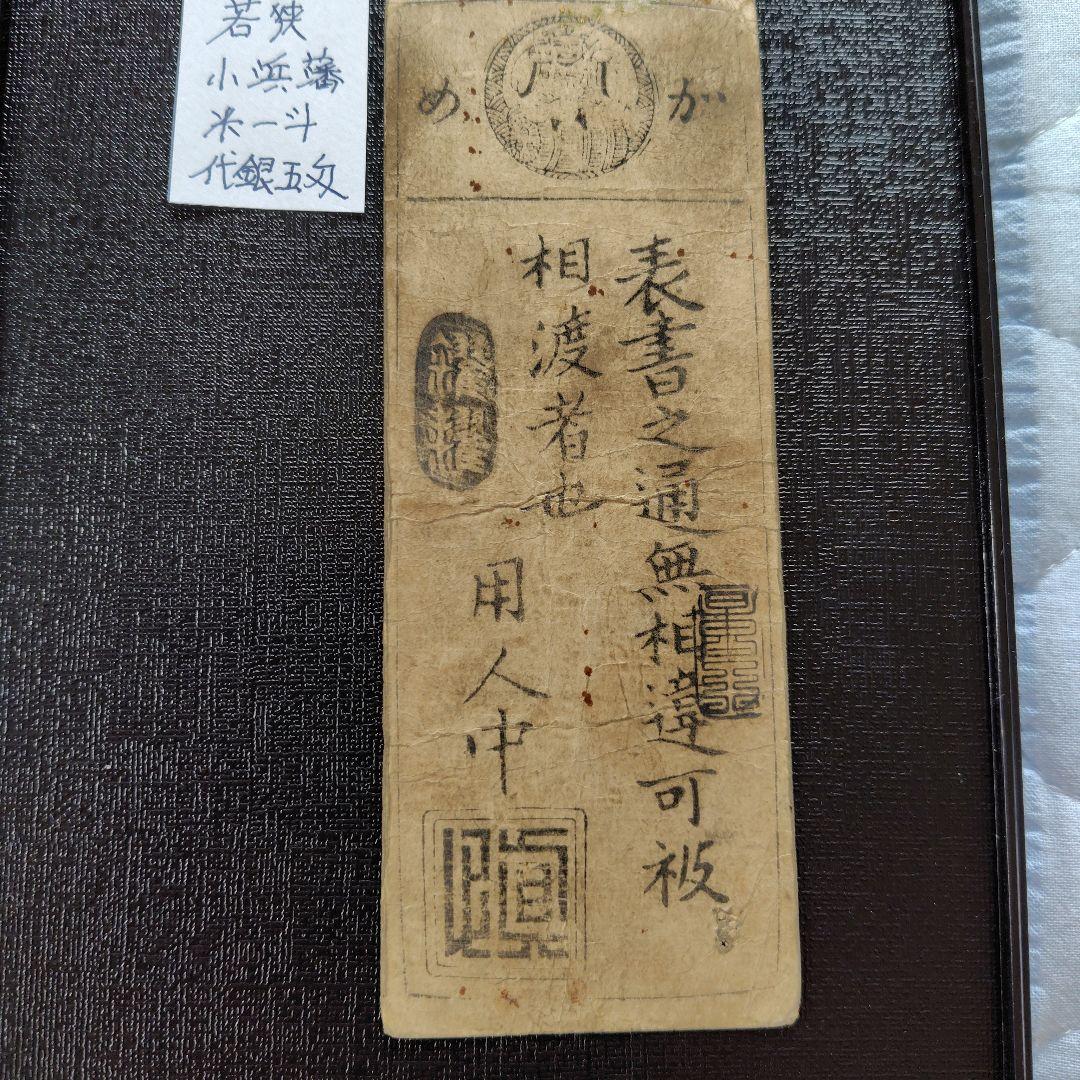 若狭
小浜藩
米一斗
代銀五匁
か
め
表書之通無相違可被
相渡者也
用人中